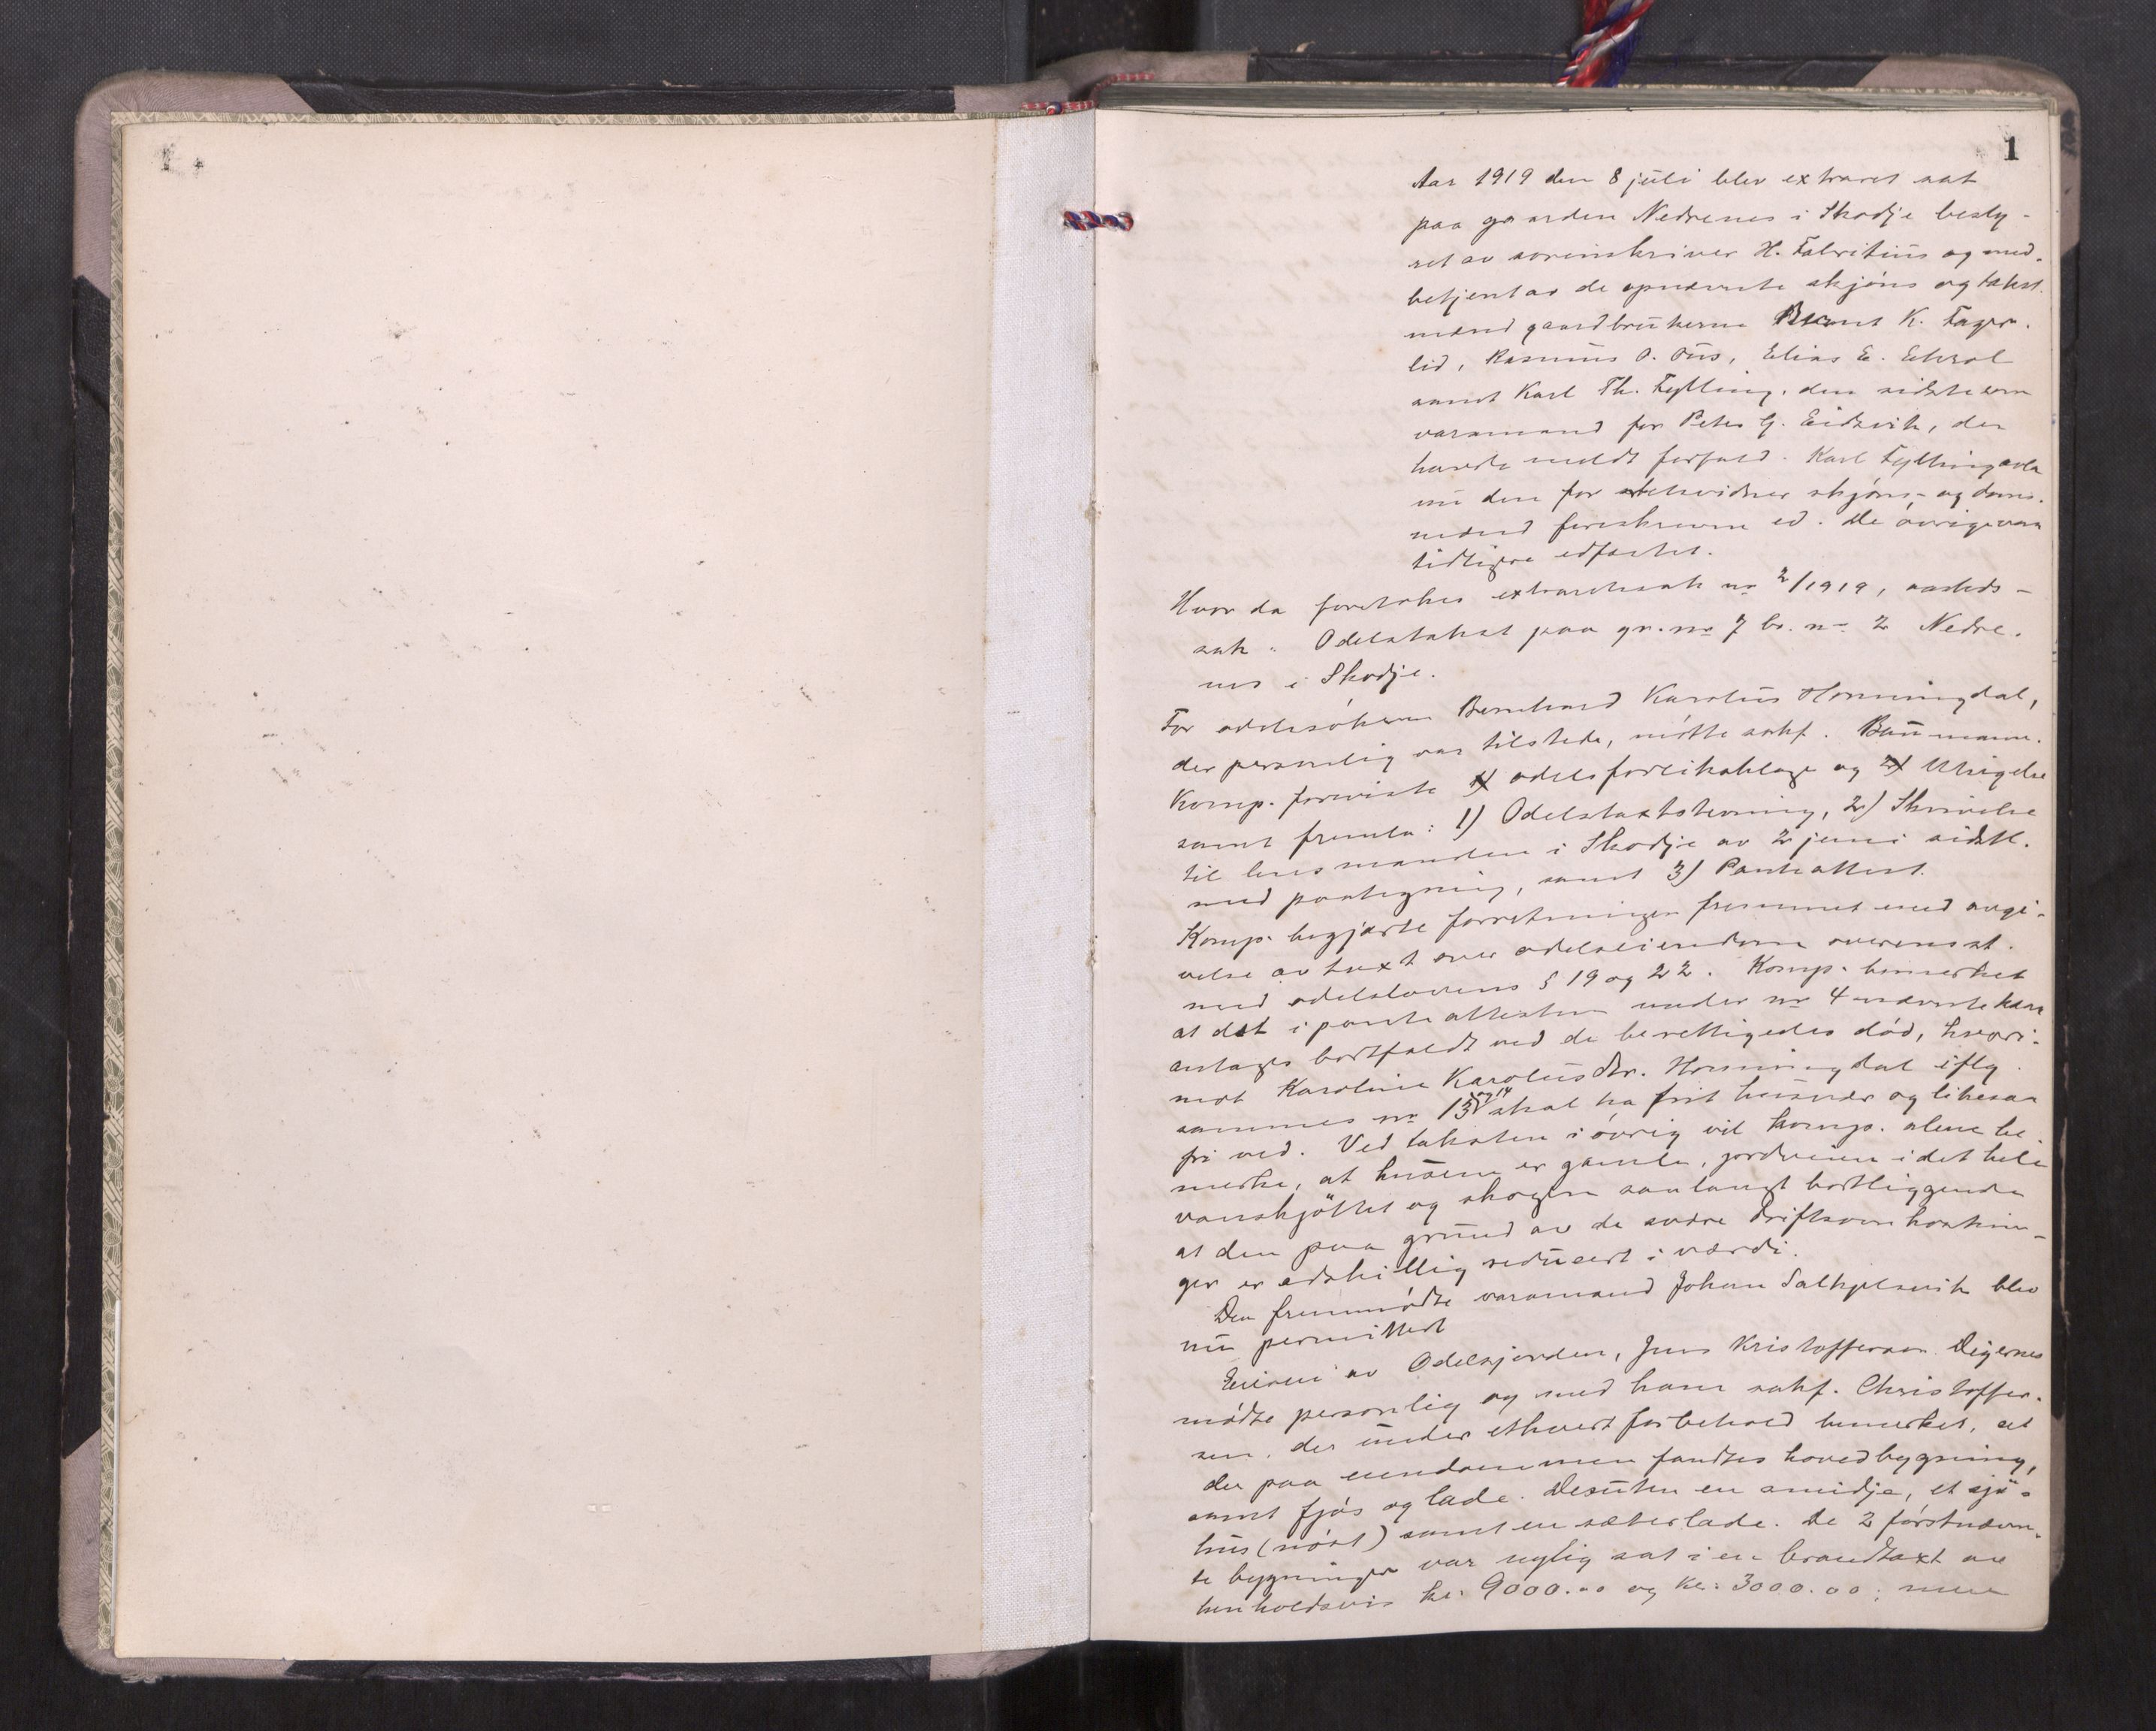 1
Aar 1919 den 8 juli blev extraret sat
paa gaarden Nedrenes i Skodje besty-
ret av sorenskriver H. Fabritius og med-
betjent av de opnævnte skjøns og takst-
mænd gaardbrukerne Bernt K. Fager-
lid, Rasmus O. Øus, Elias E. Ekrol
samt Karl Th. Fylling, den sidste som
varamand for Peter G. Eidsvik, der
havde meldt forfald. Karl Fylling avla
nu den for skjøns- og doms-
mænd foreskrevne ed. De øvrige var
tidligere edfæstet.
Hvor da foretokes extraretssak no 2/1919, aasteds-
sak: Odelstakst paa gr. no 7 br. no 2 Nedre-
nes i Skodje.
For odelssøkeren Bernhard Karolus Honningdal,
der personlig var tilstede, møtte sakf. Baumann.
Komp. foreviste odelsforlikaklage og Utsigelse
samt fremla: 1) Odelstaxtstevning, 2) Skrivelse
til lensmanden i Skodje av 2 juni sidstl.
med paategning, samt 3) Panteattest.
Komp. begjærte forretningen fremmet med avgi-
velse av taxt over odelseiendom overensst.
med odelslovens § 19 og 22. Komp. bemerket
at det i panteattesten under no 4 nævnte kaar
antages bortfaldt ved de berettigedes død, hvori-
mot Karoline Karolusdtr. Honningdal iflg.
sammes no 13 og 14 skal ha frit husvær og likesaa
fri ved. Ved taksten i øvrig vil komp. alene be-
merke, at husene er gamle, jordveien i det hele
vanskjøttet og skogen saa langt bortliggende
at den paa grund av de svære driftsomkostnin-
ger er adskillig reducert i værdi.
Den fremmødte varamand Johan Salthjelsvik blev
nu permittert
Eieren av Odelsjorden, Jens Kristofferson Digernes
mødte personlig og med ham sakf. Christoffer-
sen, der under ethvert forbehold bemerket, at
der paa eiendommen fandtes hovedbygning,
samt fjøs og lade. Desuten en smidje, et sjø-
hus (nøst) samt en sæterlade. De 2 førstnævn-
te bygninger var nylig sat i en brandtaxt av
henholdsvis kr. 9000.00 og kr. 3000.00; men